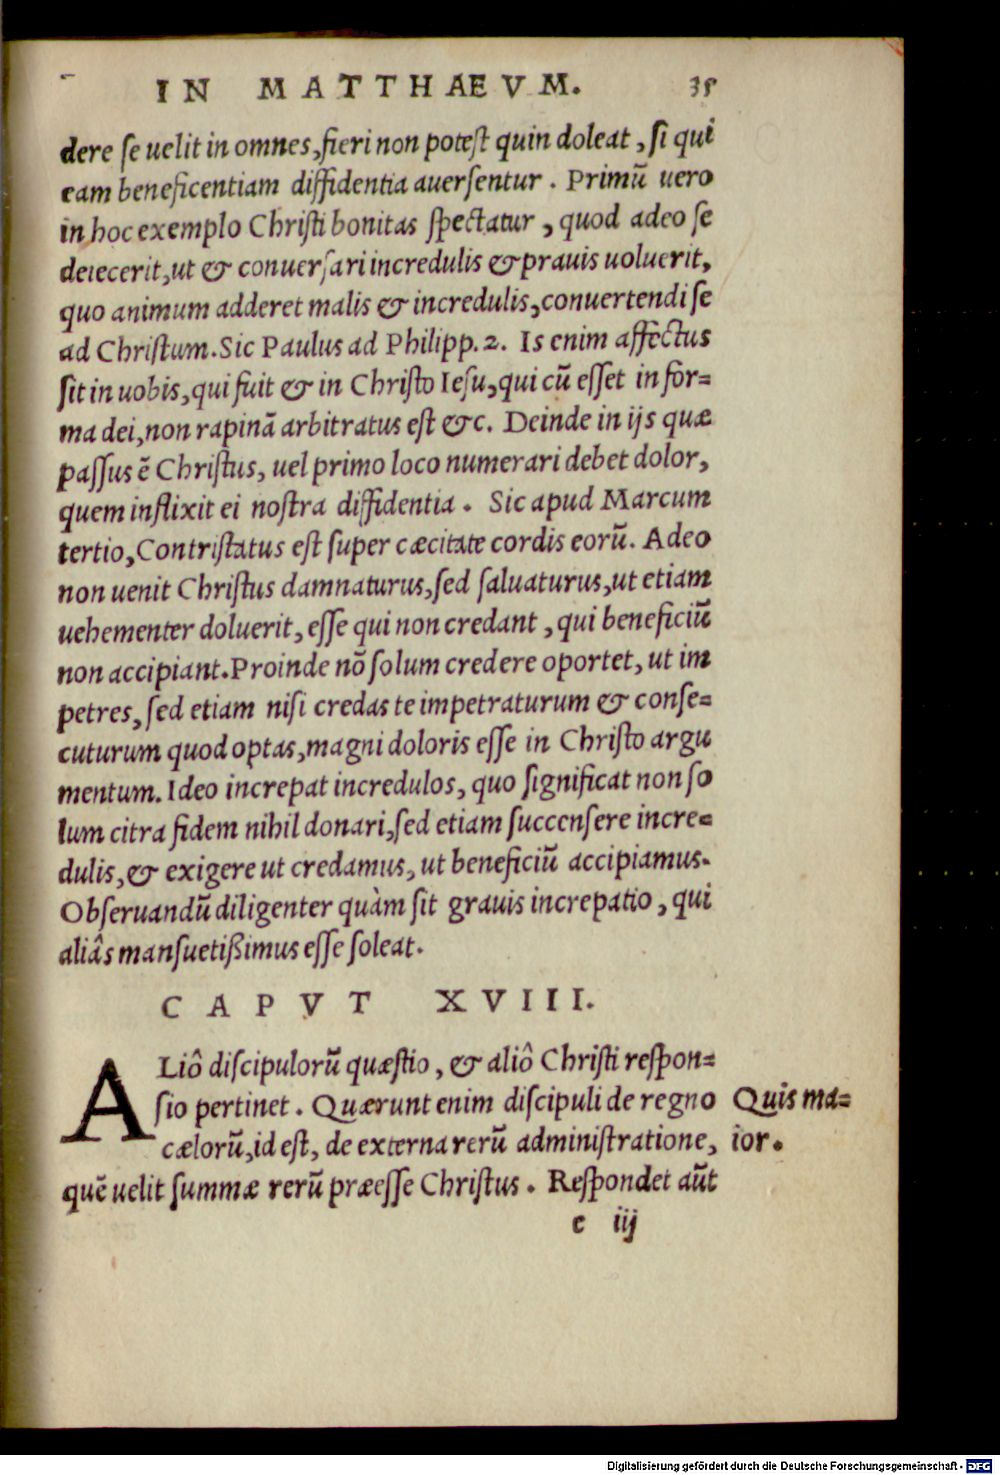 IN MATTHAEVM. 35
dere ſe uelit in omnes, fieri non poteſt quin doleat, ſi qui
eam beneficentiam diffidentia auerſentur. Primũ uero
in hoc exemplo Chriſti bonitas ſpectatur, quod adeo ſe
deiecerit, ut & conuerſari incredulis & prauis uoluerit,
quo animum adderet malis & incredulis, conuertendi ſe
ad Chriſtum. Sic Paulus ad Philipp. 2. Is enim affectus
ſit in uobis, qui fuit & in Chriſto Ieſu, qui cũ eſſet in for=
ma dei, non rapinã arbitratus eſt &c. Deinde in ijs quæ
paſſus ẽ Chriſtus, uel primo loco numerari debet dolor,
quem inflixit ei noſtra diffidentia. Sic apud Marcum
tertio, Contriſtatus eſt ſuper cæcitate cordis eorũ. Adeo
non uenit Chriſtus damnaturus, ſed ſaluaturus, ut etiam
uehementer doluerit, eſſe qui non credant, qui beneficiũ
non accipiant. Proinde nõ ſolum credere oportet, ut im
petres, ſed etiam niſi credas te impetraturum & conſe=
cuturum quod optas, magni doloris eſſe in Chriſto argu
mentum. Ideo increpat incredulos, quo ſignificat non ſo
lum citra fidem nihil donari, ſed etiam ſuccenſere incre=
dulis, & exigere ut credamus, ut beneficiũ accipiamus.
Obſeruandũ diligenter quàm ſit grauis increpatio, qui
aliâs manſuetißimus eſſe ſoleat.
CAPVT XVIII.
ALiô diſcipulorũ quæſtio, & aliô Chriſti reſpon=
ſio pertinet. Quærunt enim diſcipuli de regno
cælorũ, id eſt, de externa rerũ adminiſtratione,
quẽ uelit ſummæ rerũ præeſſe Chriſtus. Reſpondet aũt
Quis ma=
ior.
e iij
Digitalisierung gefördert durch die Deutsche Forschungsgemeinschaft - DFG